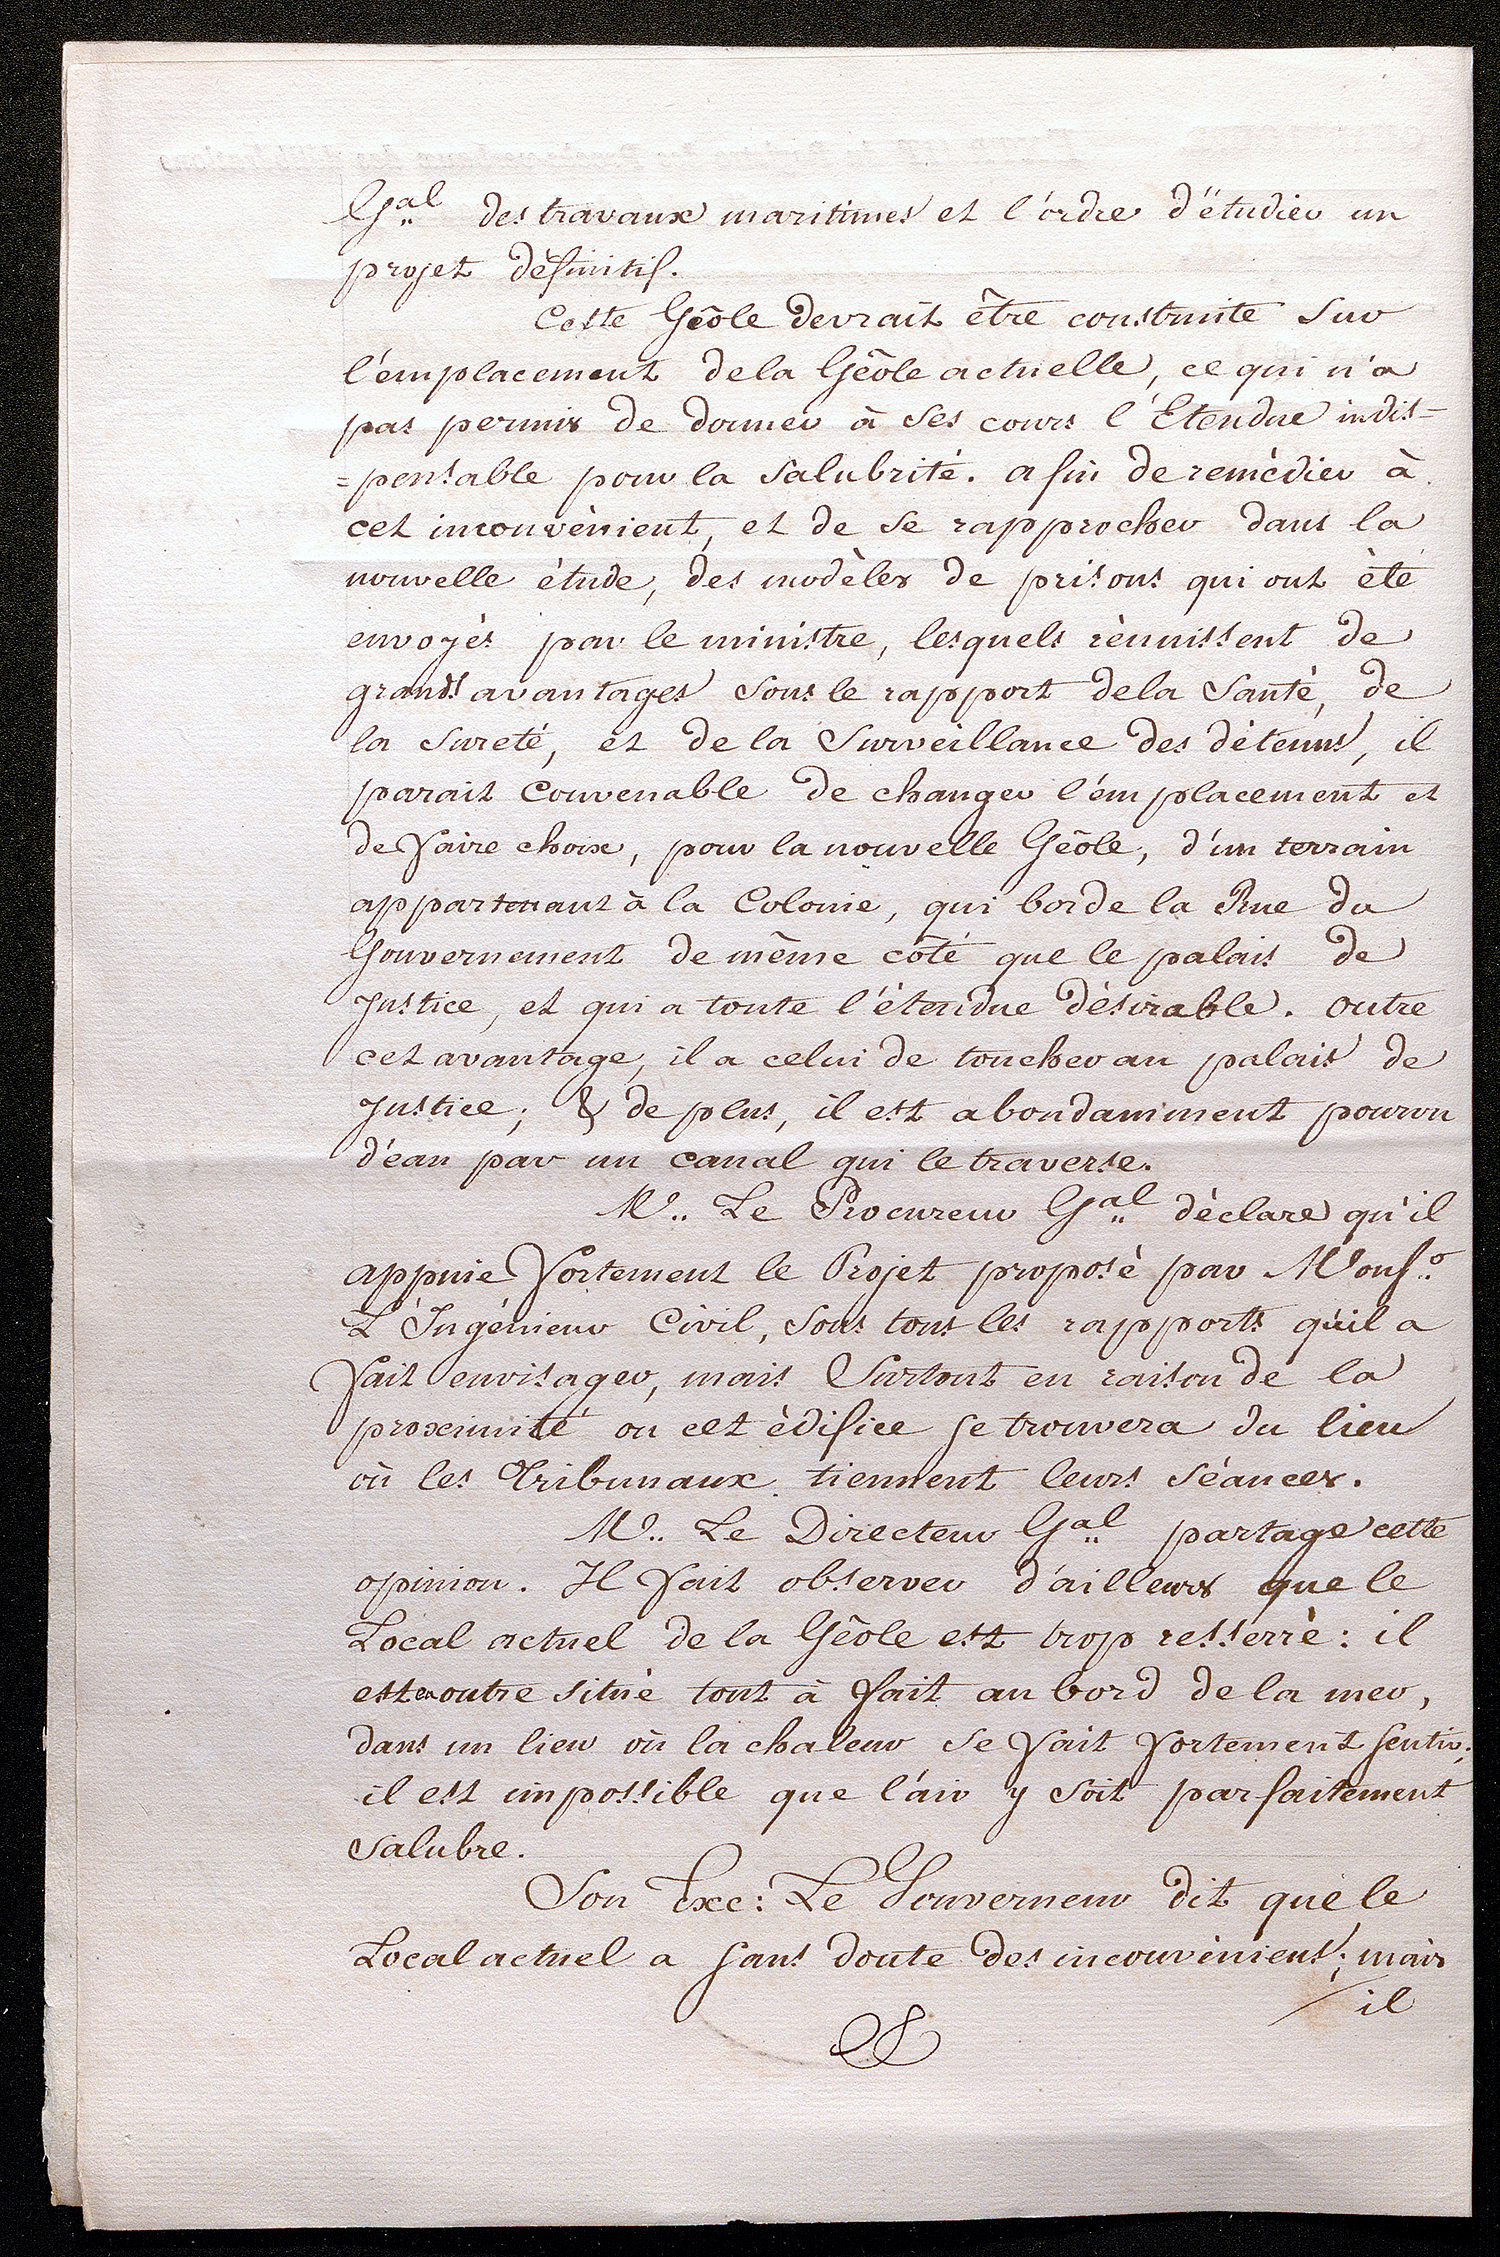 Gal des travaux maritimes et l'ordre d'étudier un
projet définitif.
Cette Geôle devrait être construite sur
l'emplacement de la Geôle actuelle, ce qui n'a
pas permis de donner à ses cours l'Etendue indis=
=pensable pour la salubrité. afin de remèdier à
cet inconvènient, et de se rapprocher dans la
nouvelle étude, des modèles de prisons qui ont èté
envoyés par le ministre, lesquels rèunissent de
grands avantages sous le rapport de la Santé, de
la sureté, et de la Surveillance des dètenus, il
parait Convenable de changer l'emplacement et
de faire choix, pour la nouvelle Geôle, d'un terrain
appartenant à la Colonie, qui borde la Rue du
Gouvernement de même côté que le palais de
Justice, et qui a toute l'étendue désirable. outre
cet avantage, il a celui de toucher au palais de
Justice; & de plus, il est abondamment pourvu
d'eau par un canal qui le traverse.
Mr. Le Procureur Gal déclare qu'il
appuie fortement le Projet proposè par Monsr.
L'Ingénieur Civil, sous tous les rapports qu'il a
fait envisager, mais Surtout en raison de la
proximité où cet èdifice se trouvera du lieu
où les Tribunaux tiennent leurs séances.
Mr. Le Directeur Gal partage cette
opinion. Il fait observer d'ailleurs que le
Local actuel de la Geôle est trop resserré: il
est en outre situè tout à fait au bord de la mer,
dans un lieu où la chaleur se fait fortement sentir;
il est impossible que l'air y soit parfaitement
salubre.
Son Exc: Le Gouverneur dit que le
Local actuel a sans doute des inconvèniens; mais
il